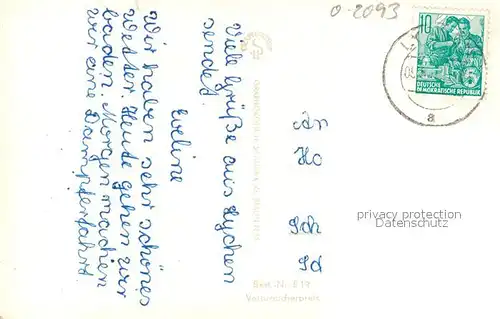 0-2093
10
DEUTSCHE
DEMOKRATISCHE REPUBLIK
a
Viele Grüße aus Lychen
sendet
Eveline
Wir haben sehr schönes
Wetter. Heute gehen wir
baden. Morgen machen
wir eine Dampferfahrt.
An
Ho
Sch
Id
privacy protection
Datenschutz
Best.-Nr. E 19
Verbraucherpreis